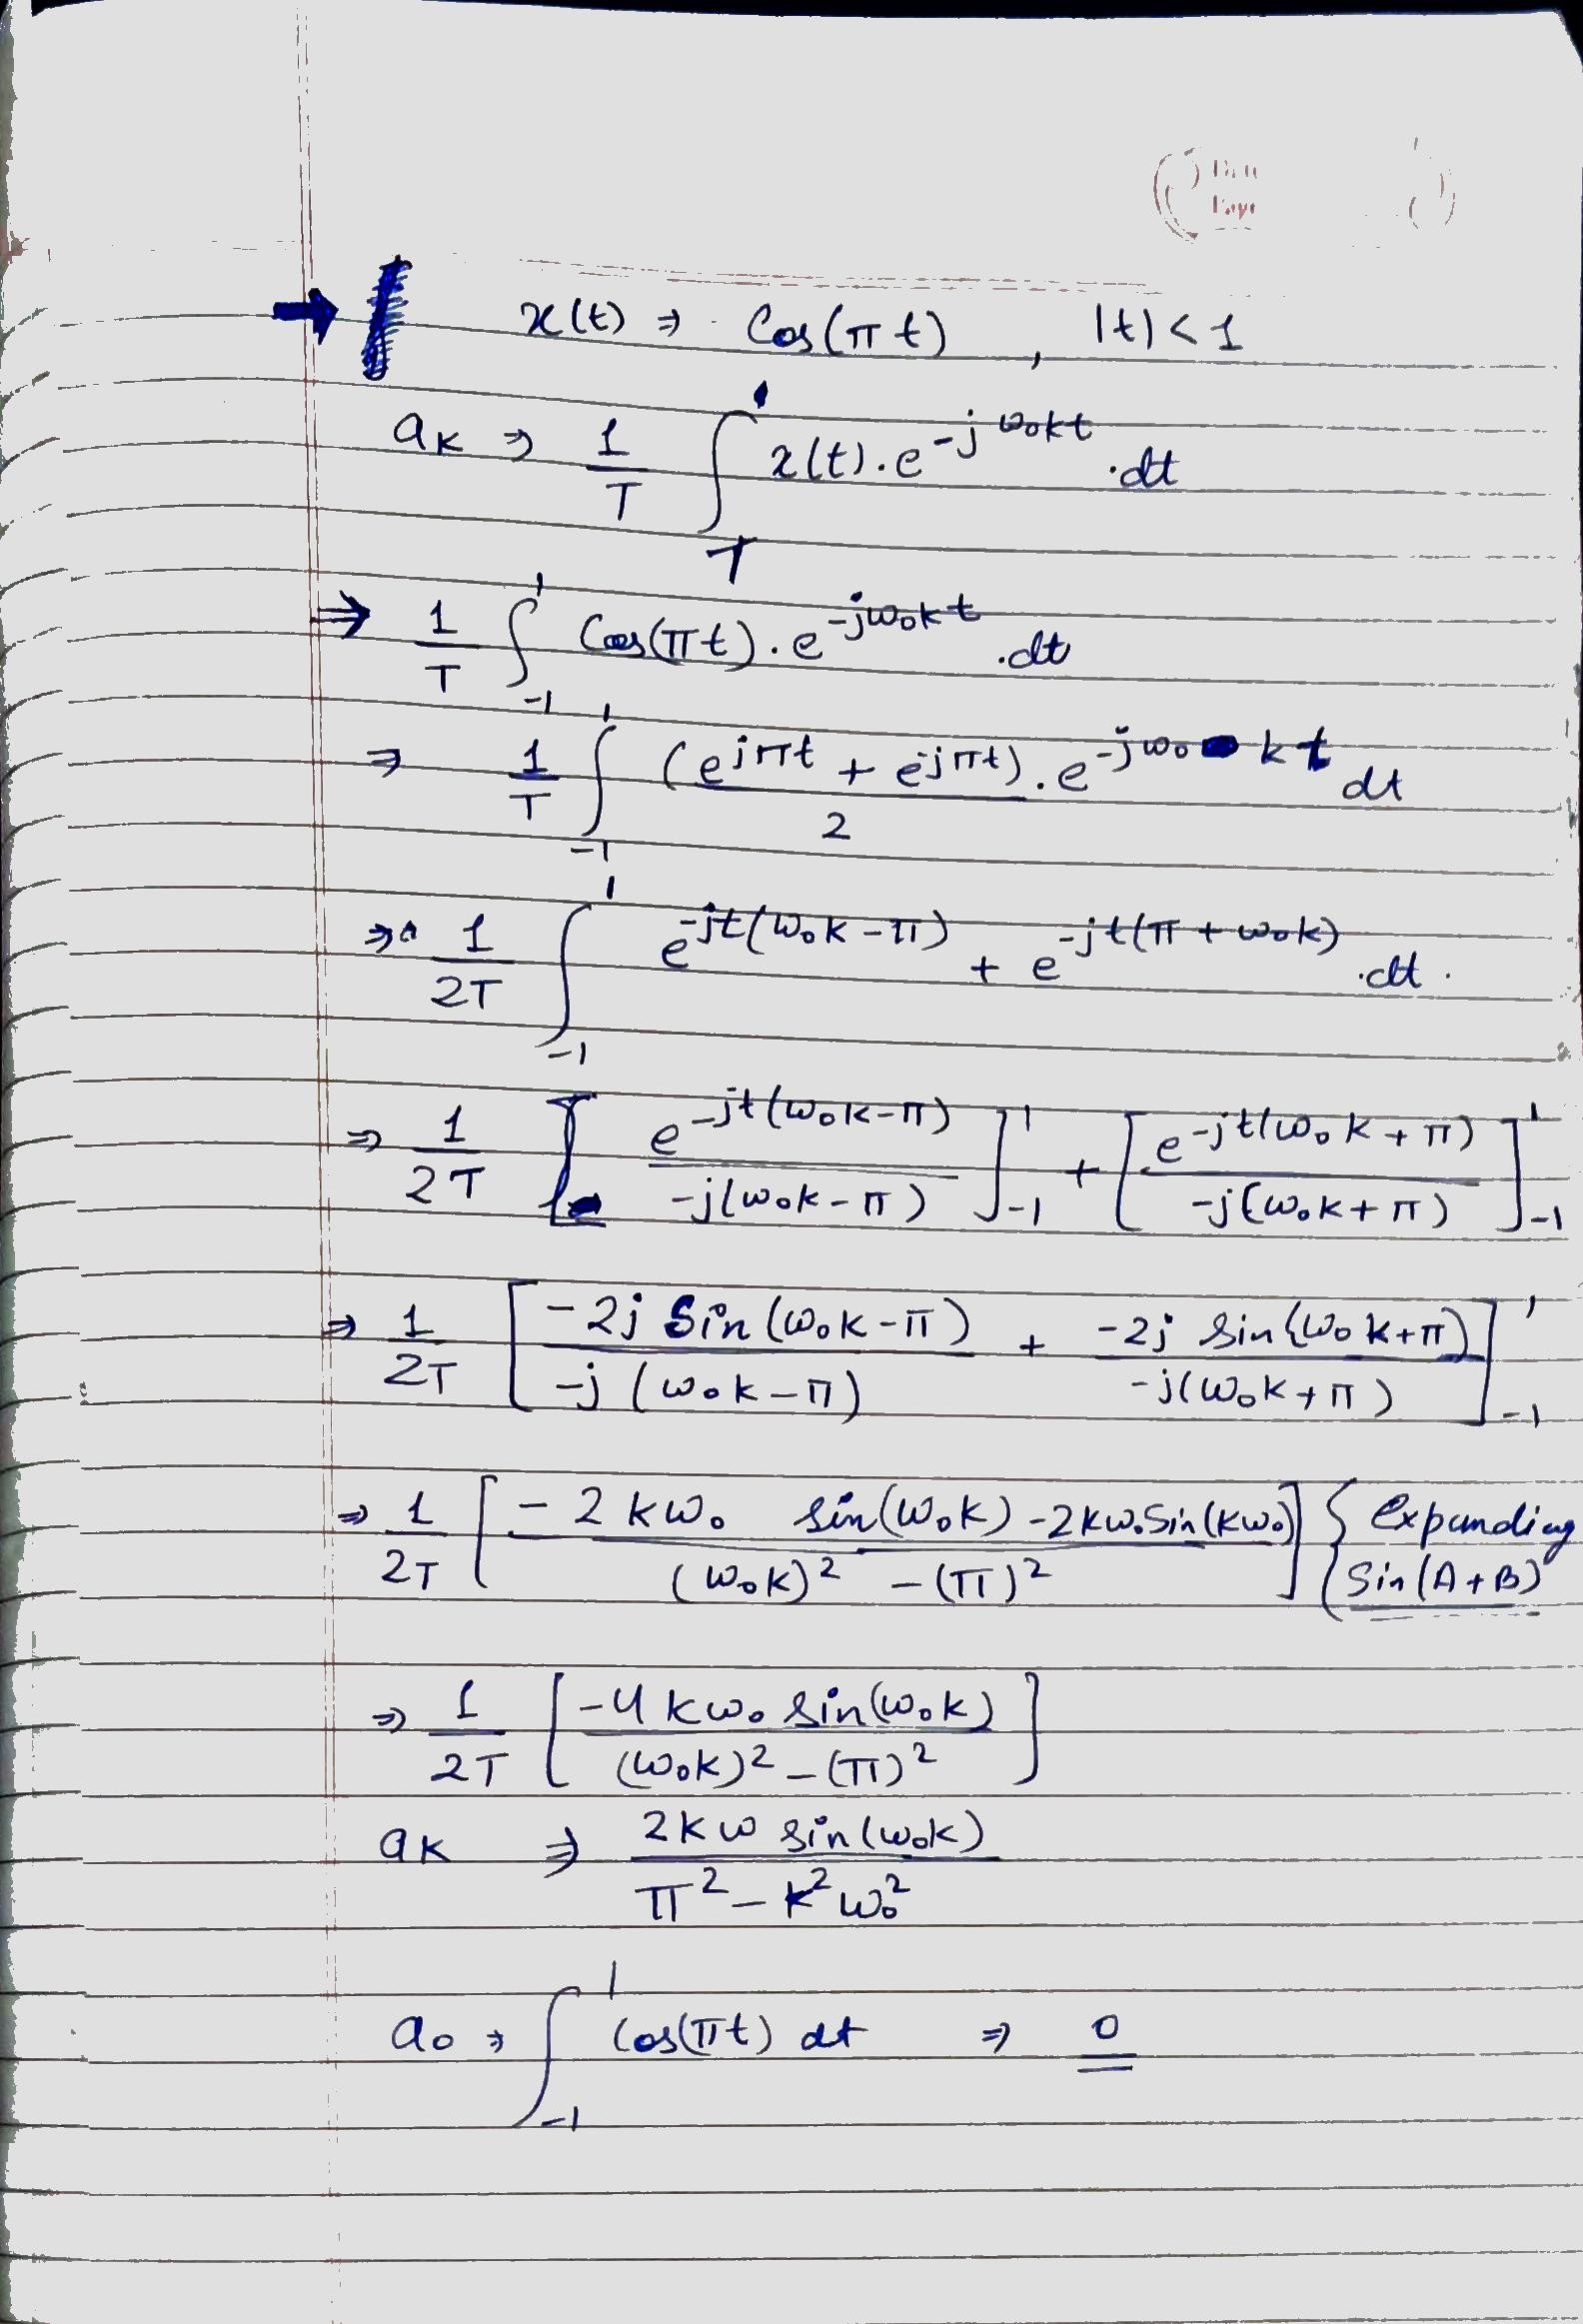 x(t) ⇒ Cos(π t) , |t| < 1
aK ⇒ 1/T ∫_T x(t).e^(-jω₀kt) .dt
⇒ 1/T ∫_-1^1 Cos(πt).e^(-jω₀kt) .dt
⇒ 1/T ∫_-1^1 (e^(jπt) + e^(-jπt))/2 . e^(-jω₀kt) dt
⇒ 1/2T ∫_-1^1 e^(-jt(ω₀k-π)) + e^(-jt(π+ω₀k)) .dt.
⇒ 1/2T [e^(-jt(ω₀k-π))/-j(ω₀k-π)]_-1^1 + [e^(-jt(ω₀k+π))/-j(ω₀k+π)]_-1^1
⇒ 1/2T [-2j Sin(ω₀k-π)/-j(ω₀k-π) + -2j Sin(ω₀k+π)/-j(ω₀k+π)]_-1^1
⇒ 1/2T [(-2kω₀ Sin(ω₀k) -2kω₀Sin(kω₀))/((ω₀k)² -(π)²)] { Expanding Sin(A+B)
⇒ 1/2T [-4kω₀ Sin(ω₀k)/((ω₀k)²-(π)²)]
aK ⇒ 2kω Sin(ω₀k)/(π²-k²ω₀²)
a₀ ⇒ ∫_-1^1 Cos(πt) dt ⇒ 0